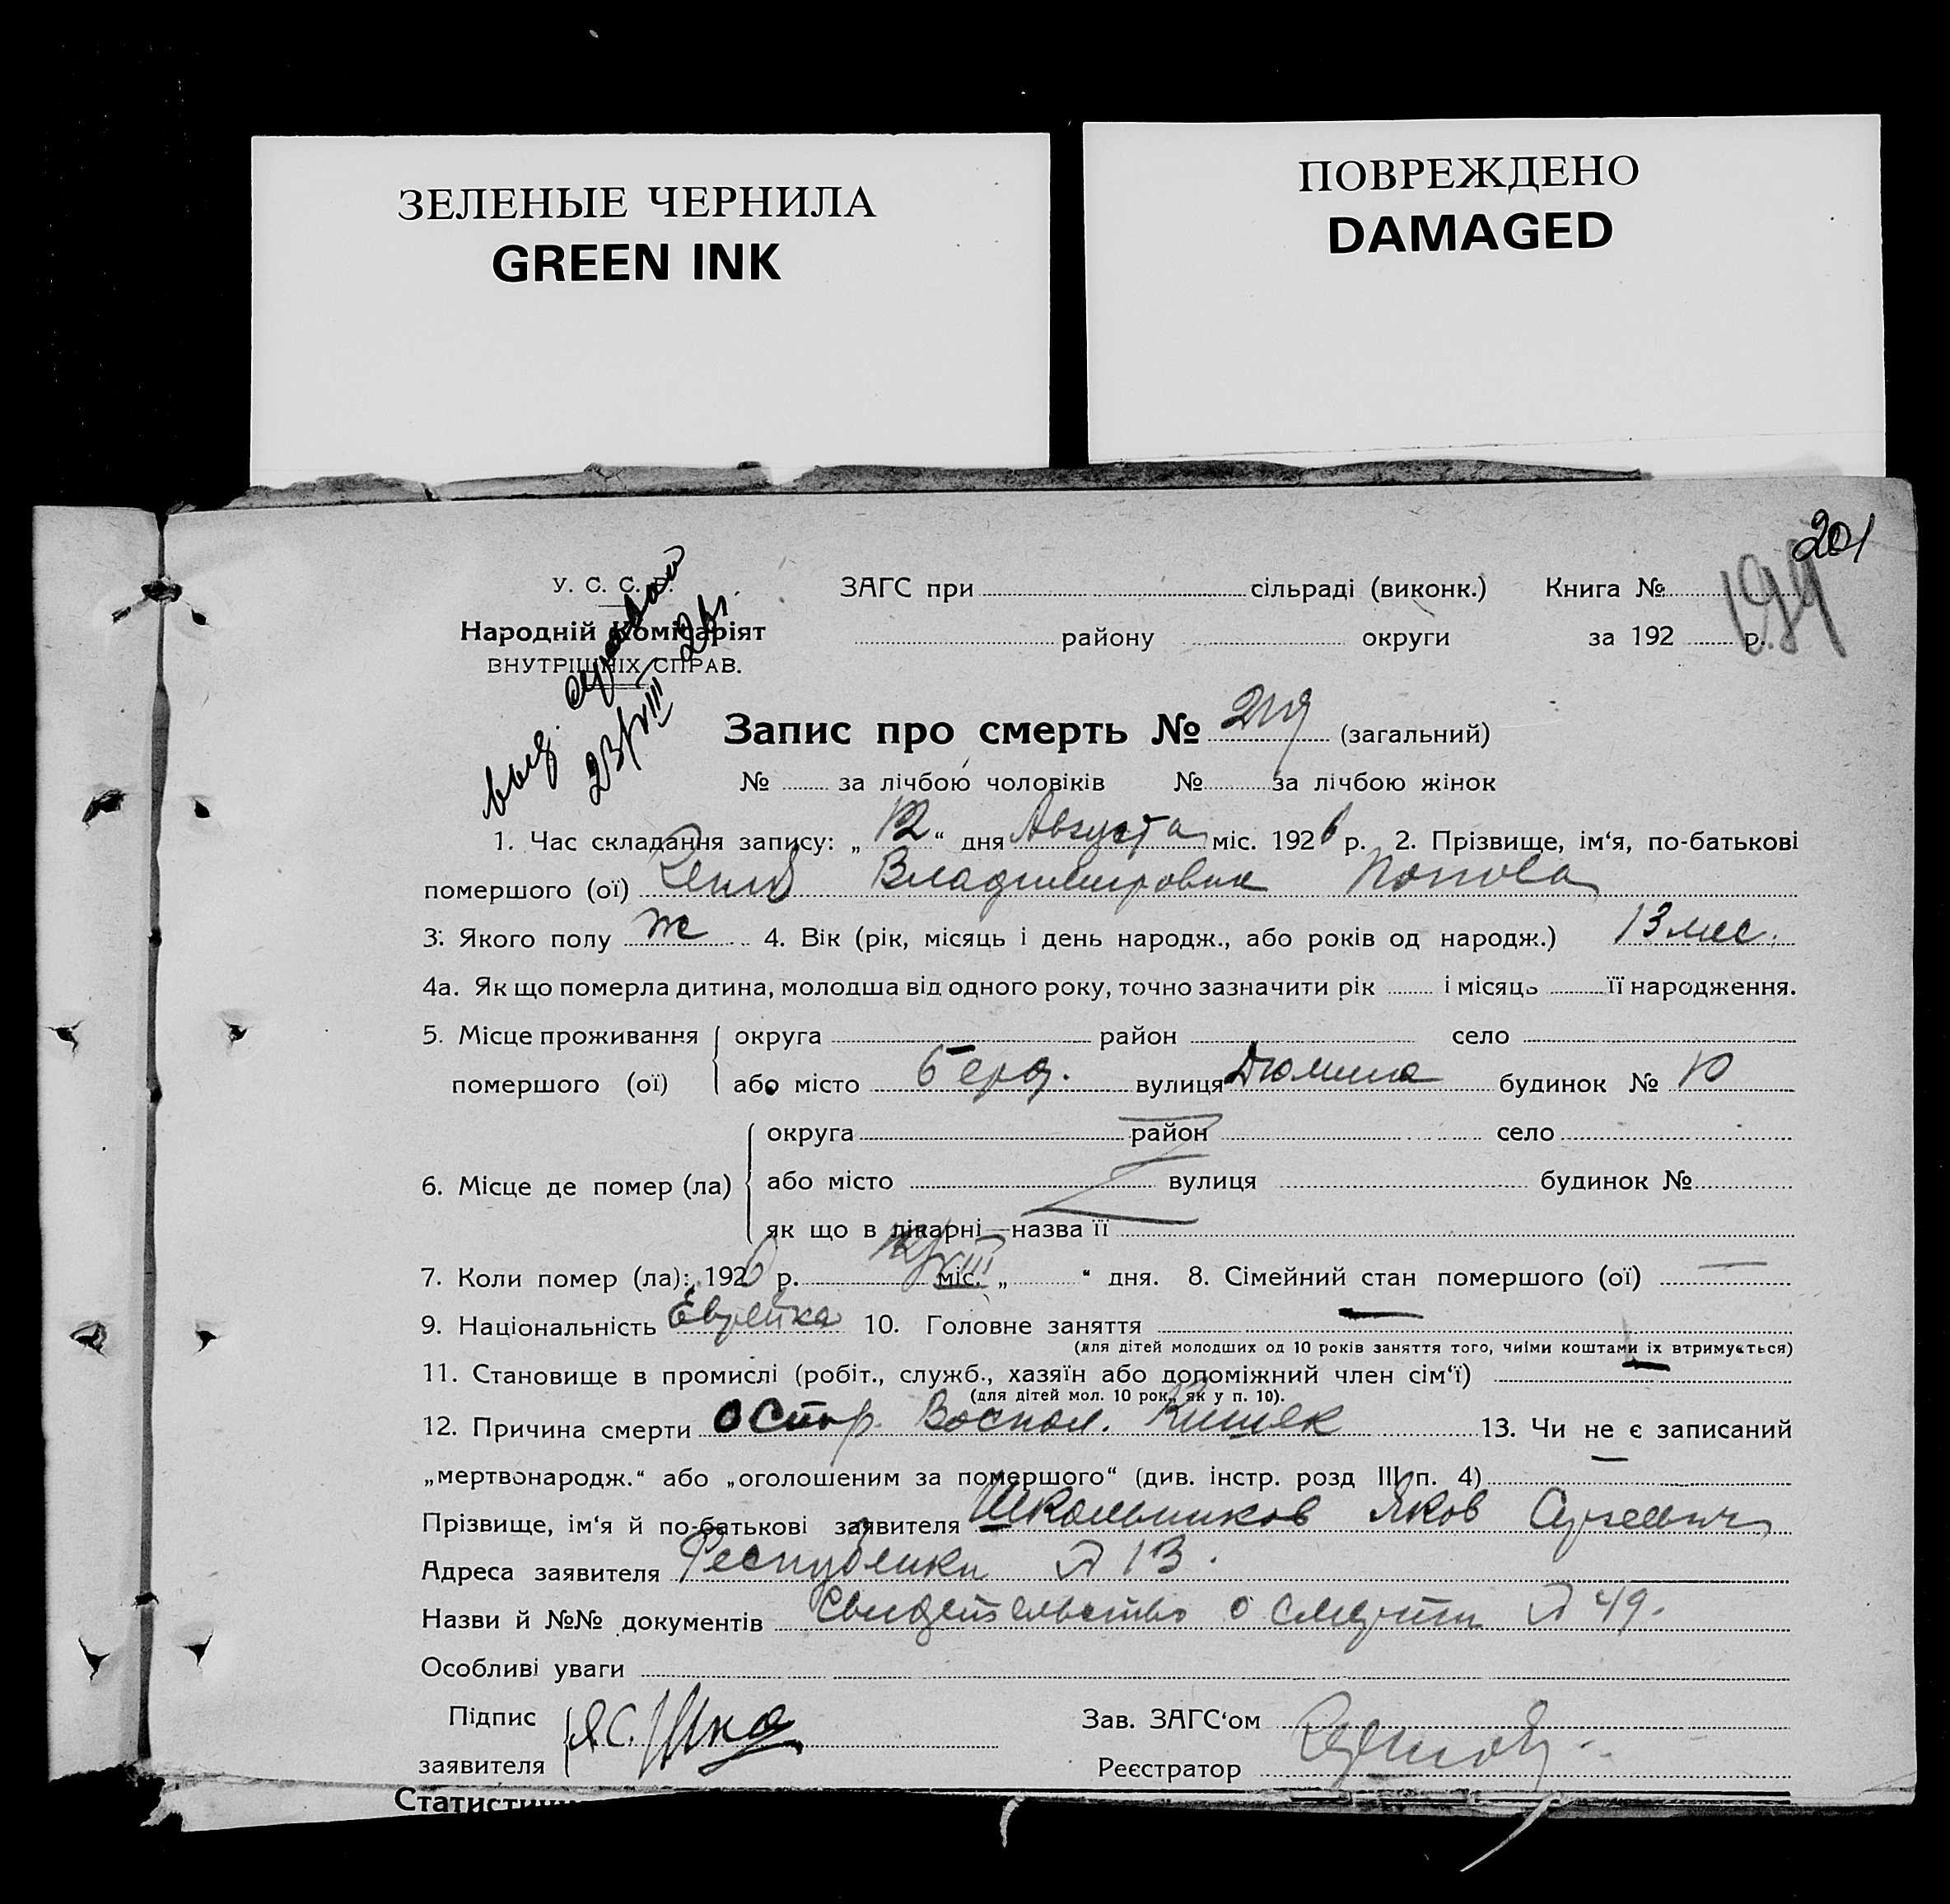 ЗЕЛЕНЫЕ ЧЕРНИЛА
GREEN INK
ПОВРЕЖДЕНО
DAMAGED
201
199
У. С. С. Р.
Народній Комісаріят
ВНУТРІШНІХ СПРАВ.
выд.
23/VIII 26 г.
ЗАГС при сільраді (виконк.) Книга №
району округи за 192 р.
Запис про смерть № (загальний)
№ за лічбою чоловіків № за лічбою жінок
1. Час складання запису: „12“ дня Августа міс. 1926 р. 2. Прізвище, ім‘я, по-батькові
помершого (ої) Владимировна Попова
3. Якого полу ж 4. Вік (рік, місяць і день народж., або років од народж.) 13 мес.
4а. Як що померла дитина, молодша від одного року, точно зазначити рік і місяць її народження.
5. Місце проживання округа район село
помершого (ої) або місто Берд. вулиця Дюмина будинок № 10
округа район село
6. Місце де помер (ла) або місто вулиця будинок №
як що в лікарні—назва її
7. Коли помер (ла): 1926 р. 12/VIII міс. „ “ дня. 8. Сімейний стан помершого (ої) —
9. Національність Еврейка 10. Головне заняття —
(для дітей молодших од 10 років заняття того, чиїми коштами їх втримується)
11. Становище в промислі (робіт., служб., хазяїн або допоміжний член сім‘ї) —
(для дітей мол. 10 рок., як у п. 10).
12. Причина смерти Остр. Воспал. Кишек 13. Чи не є записаний
„мертвонародж.“ або „оголошеним за помершого“ (див. інстр. розд III п. 4) —
Прізвище, ім‘я й по-батькові заявителя Школьников Яков
Адреса заявителя Республики № 13.
Назви й №№ документів Свидетельство о смерти № 49.
Особливі уваги
Підпис
заявителя Я.С. Шко
Зав. ЗАГС‘ом
Реєстратор